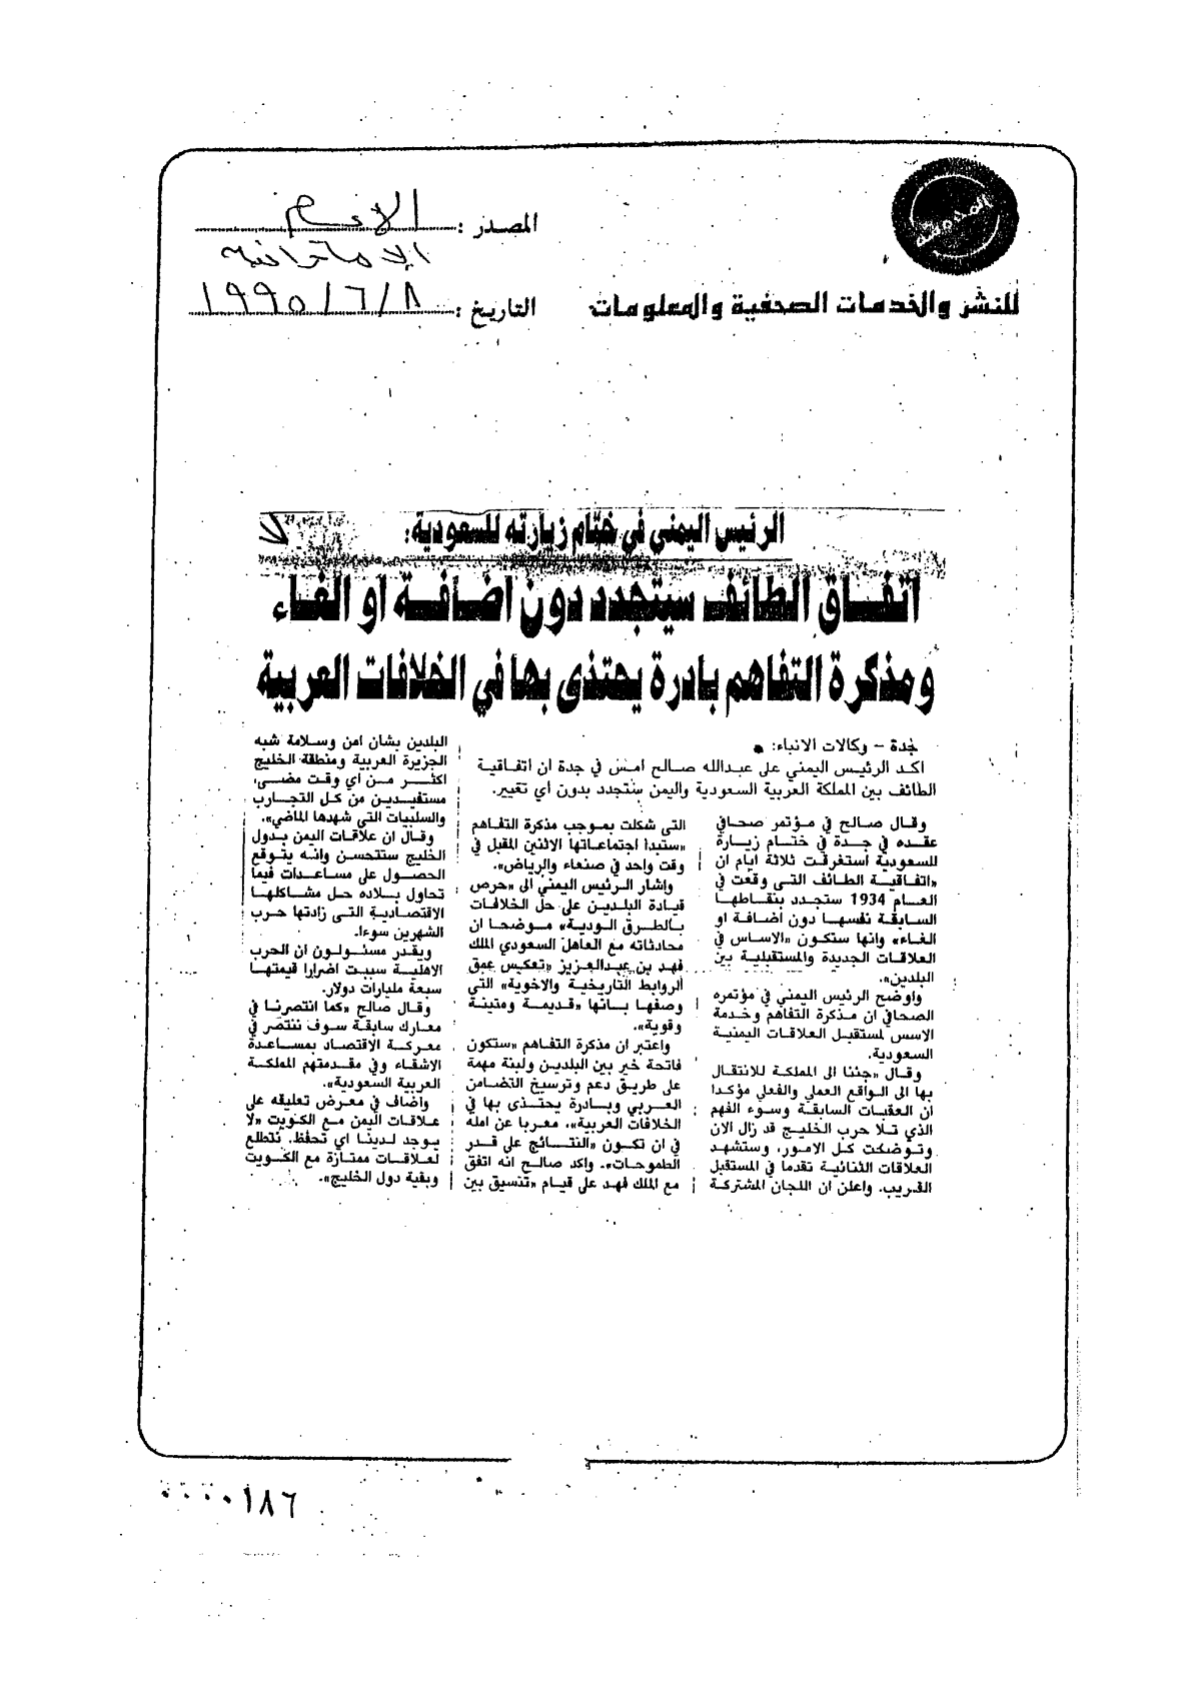 المصدر :
الاماراتية
للنشر والخدمات الصحفية والمعلومات
التاريخ : ١٩٩٥/٦/٨
الرئيس اليمني في ختام زيارته للسعودية:
اتفاق الطائف سيتجدد دون اضافة او الغاء
ومذكرة التفاهم بادرة يحتذى بها في الخلافات العربية
جدة – وكالات الانباء:
اكد الرئيس اليمني علي عبدالله صالح امس في جدة ان اتفاقية
الطائف بين المملكة العربية السعودية واليمن ستجدد بدون أي تغيير.
وقال صالح في مؤتمر صحافي
عقده في جدة في ختام زيارة
للسعودية استغرقت ثلاثة ايام ان
«اتفاقية الطائف التي وقعت في
العام 1934 ستجدد بنقاطها
السابقة نفسها دون اضافة او
الغاء» وانها ستكون «الاساس في
العلاقات الجديدة والمستقبلية بين
البلدين».
واوضح الرئيس اليمني في مؤتمره
الصحافي ان مذكرة التفاهم وخدمة
الاسس لمستقبل العلاقات اليمنية
السعودية.
وقال «جئنا الى المملكة للانتقال
بها الى الواقع العملي والفعلي مؤكدا
ان العقبات السابقة وسوء الفهم
الذي تلا حرب الخليج قد زال الان
وتوضحت كل الامور، وستشهد
العلاقات الثنائية تقدما في المستقبل
القريب. واعلن ان اللجان المشتركة
التي شكلت بموجب مذكرة التفاهم
«ستبدا اجتماعاتها الاثنين المقبل في
وقت واحد في صنعاء والرياض».
واشار الرئيس اليمني الى «حرص
قيادة البلدين على حل الخلافات
بالطرق الودية» موضحا ان
محادثاته مع العاهل السعودي الملك
فهد بن عبدالعزيز «تعكس عمق
الروابط التاريخية والاخوية» التي
وصفها بانها «قديمة ومتينة
وقوية».
واعتبر ان مذكرة التفاهم «ستكون
فاتحة خير بين البلدين ولبنة مهمة
على طريق دعم وترسيخ التضامن
العربي وبادرة يحتذى بها في
الخلافات العربية». معربا عن امله
في ان تكون «النتائج على قدر
الطموحات». واكد صالح انه اتفق
مع الملك فهد على قيام «تنسيق بين
البلدين بشان امن وسلامة شبه
الجزيرة العربية ومنطقة الخليج
اكثر من اي وقت مضى،
مستفيدين من كل التجارب
والسلبيات التي شهدها الماضي».
وقال ان علاقات اليمن بدول
الخليج ستتحسن وانه يتوقع
الحصول على مساعدات فيما
تحاول بلاده حل مشاكلها
الاقتصادية التي زادتها حرب
الشهرين سوءا.
ويقدر مسئولون ان الحرب
الاهلية سببت اضرارا قيمتها
سبعة مليارات دولار.
وقال صالح «كما انتصرنا في
معارك سابقة سوف ننتصر في
معركة الاقتصاد بمساعدة
الاشقاء وفي مقدمتهم المملكة
العربية السعودية».
واضاف في معرض تعليقه على
علاقات اليمن مع الكويت «لا
يوجد لدينا اي تحفظ. نتطلع
لعلاقات ممتازة مع الكويت
وبقية دول الخليج».
٠٠٠٠١٨٦